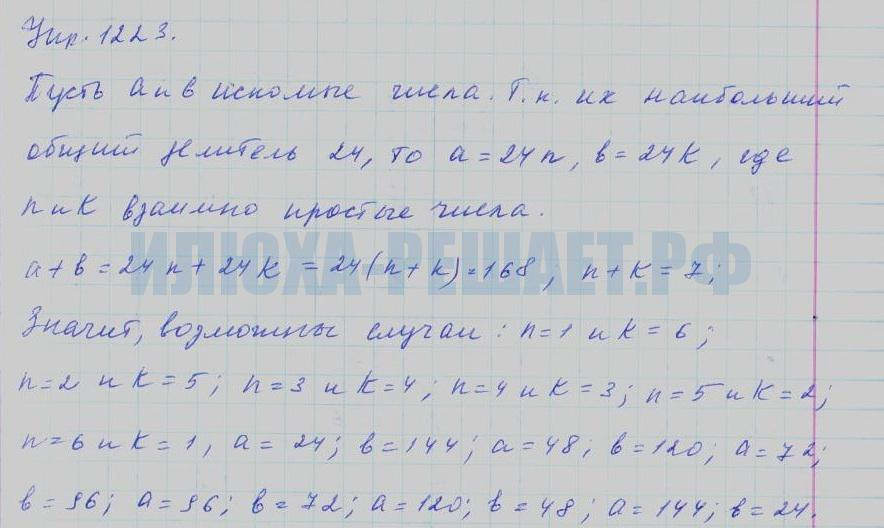 Упр. 1223.
Пусть а и в искомые числа. Т.к. их наибольший
общий делитель 24, то а = 24n, в = 24к, где
n и к взаимно простые числа.
ИЛЮХА-РЕШАЕТ.РФ
а + в = 24n + 24к = 24(n + к) = 168, n + к = 7;
Значит, возможны случаи: n = 1 и к = 6;
n = 2 и к = 5; n = 3 и к = 4; n = 4 и к = 3; n = 5 и к = 2;
n = 6 и к = 1, а = 24; в = 144; а = 48; в = 120; а = 72;
в = 96; а = 96; в = 72; а = 120; в = 48; а = 144; в = 24.